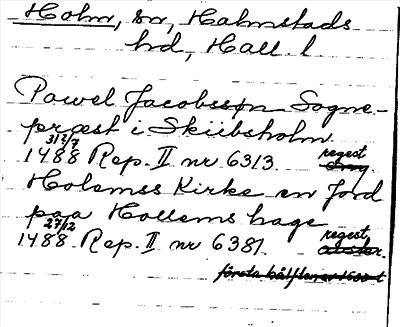 Holm, sn, Halmstads
hd, Hall. l
Pawel Jacobssøn Sogne-
præst i Skübsholm
31/7
1488 Rep. II nr 6313. regest
Holemss Kirke en Jord
paa Hollems hage
27/12
1488. Rep. II nr 6381. regest
första hälften av 1600-t